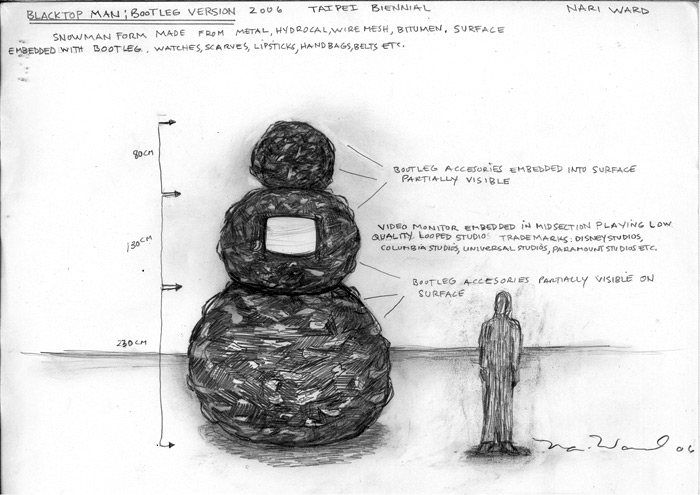 BLACKTOP MAN; BOOTLEG VERSION 2006 TAIPEI BIENNIAL NARI WARD
SNOWMAN FORM MADE FROM METAL, HYDROCAL, WIRE MESH, BITUMEN. SURFACE
EMBEDDED WITH BOOTLEG. WATCHES, SCARVES, LIPSTICKS, HANDBAGS, BELTS ETC.
80CM
BOOTLEG ACCESORIES EMBEDDED INTO SURFACE
PARTIALLY VISIBLE
130CM
VIDEO MONITOR EMBEDDED IN MIDSECTION PLAYING LOW
QUALITY LOOPED STUDIO TRADEMARKS: DISNEY STUDIOS,
COLUMBIA STUDIOS, UNIVERSAL STUDIOS, PARAMOUNT STUDIOS ETC.
BOOTLEG ACCESARIES PARTIALLY VISIBLE ON
SURFACE
230CM
Na. Ward 06